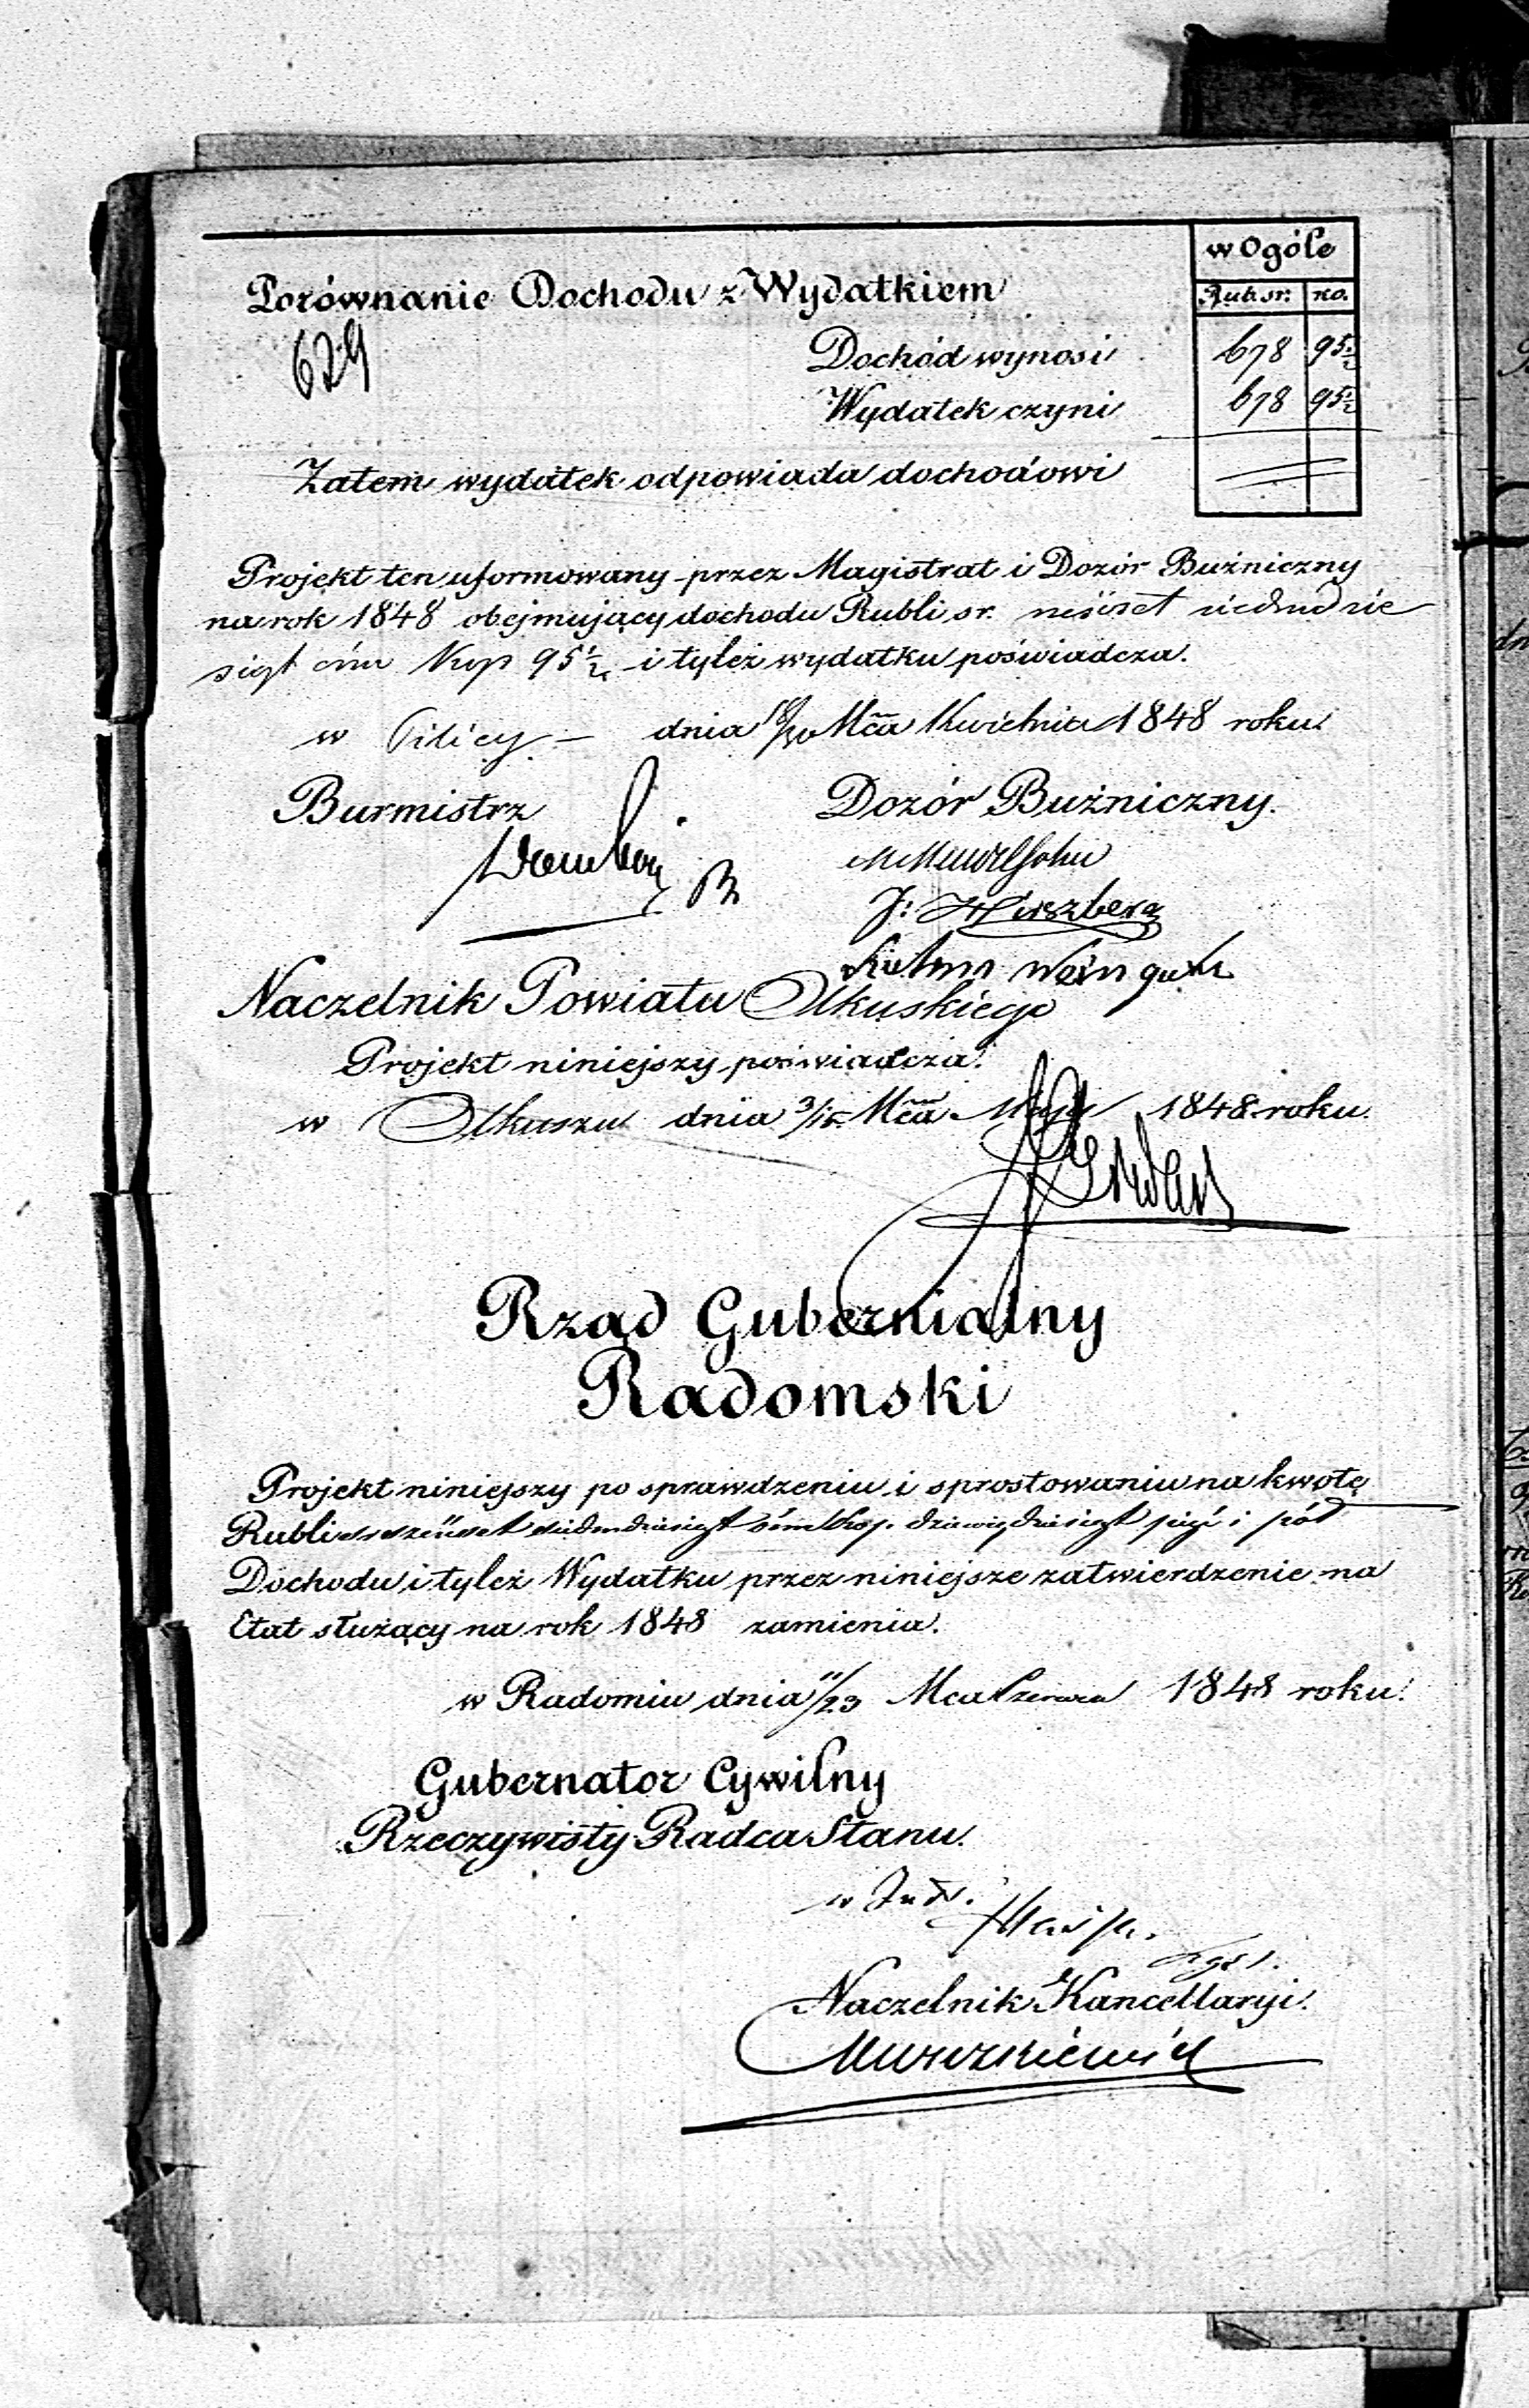 w Ogóle
Porównanie Dochodu z Wydatkiem
Rub.sr. ko.
629
Dochód wynosi 678 95½
Wydatek czyni 678 95½
Zatem wydatek odpowiada dochodowi
Projekt ten uformowany przez Magistrat i Dozór Buźniczny
na rok 1848 obejmujący dochodu Rubli sr. sześćset siedmdzie
siąt ośm Kop 95½ i tyleż wydatku poświadcza.
w Pilicy – dnia 18/30 Mca Kwietnia 1848 roku.
Burmistrz Dozór Buźniczny.
M Mendelsohn
J: Hirszberg
Naczelnik Powiatu Olkuskiego
Projekt niniejszy poświadcza.
w Olkuszu dnia 3/15 Mca Maja 1848 roku.
Rząd Gubernialny
Radomski
Projekt niniejszy po sprawdzeniu i sprostowaniu na kwotę
Rubli sr sześćset siedmdziesiąt ośm kop. dziewięćdziesiąt pięć i pół
Dochodu i tyleż Wydatku przez niniejsze zatwierdzenie na
Etat służący na rok 1848 zamienia.
w Radomiu dnia 11/23 Mca Czerwca 1848 roku.
Gubernator Cywilny
Rzeczywisty Radca Stanu.
Naczelnik Kancellaryi.